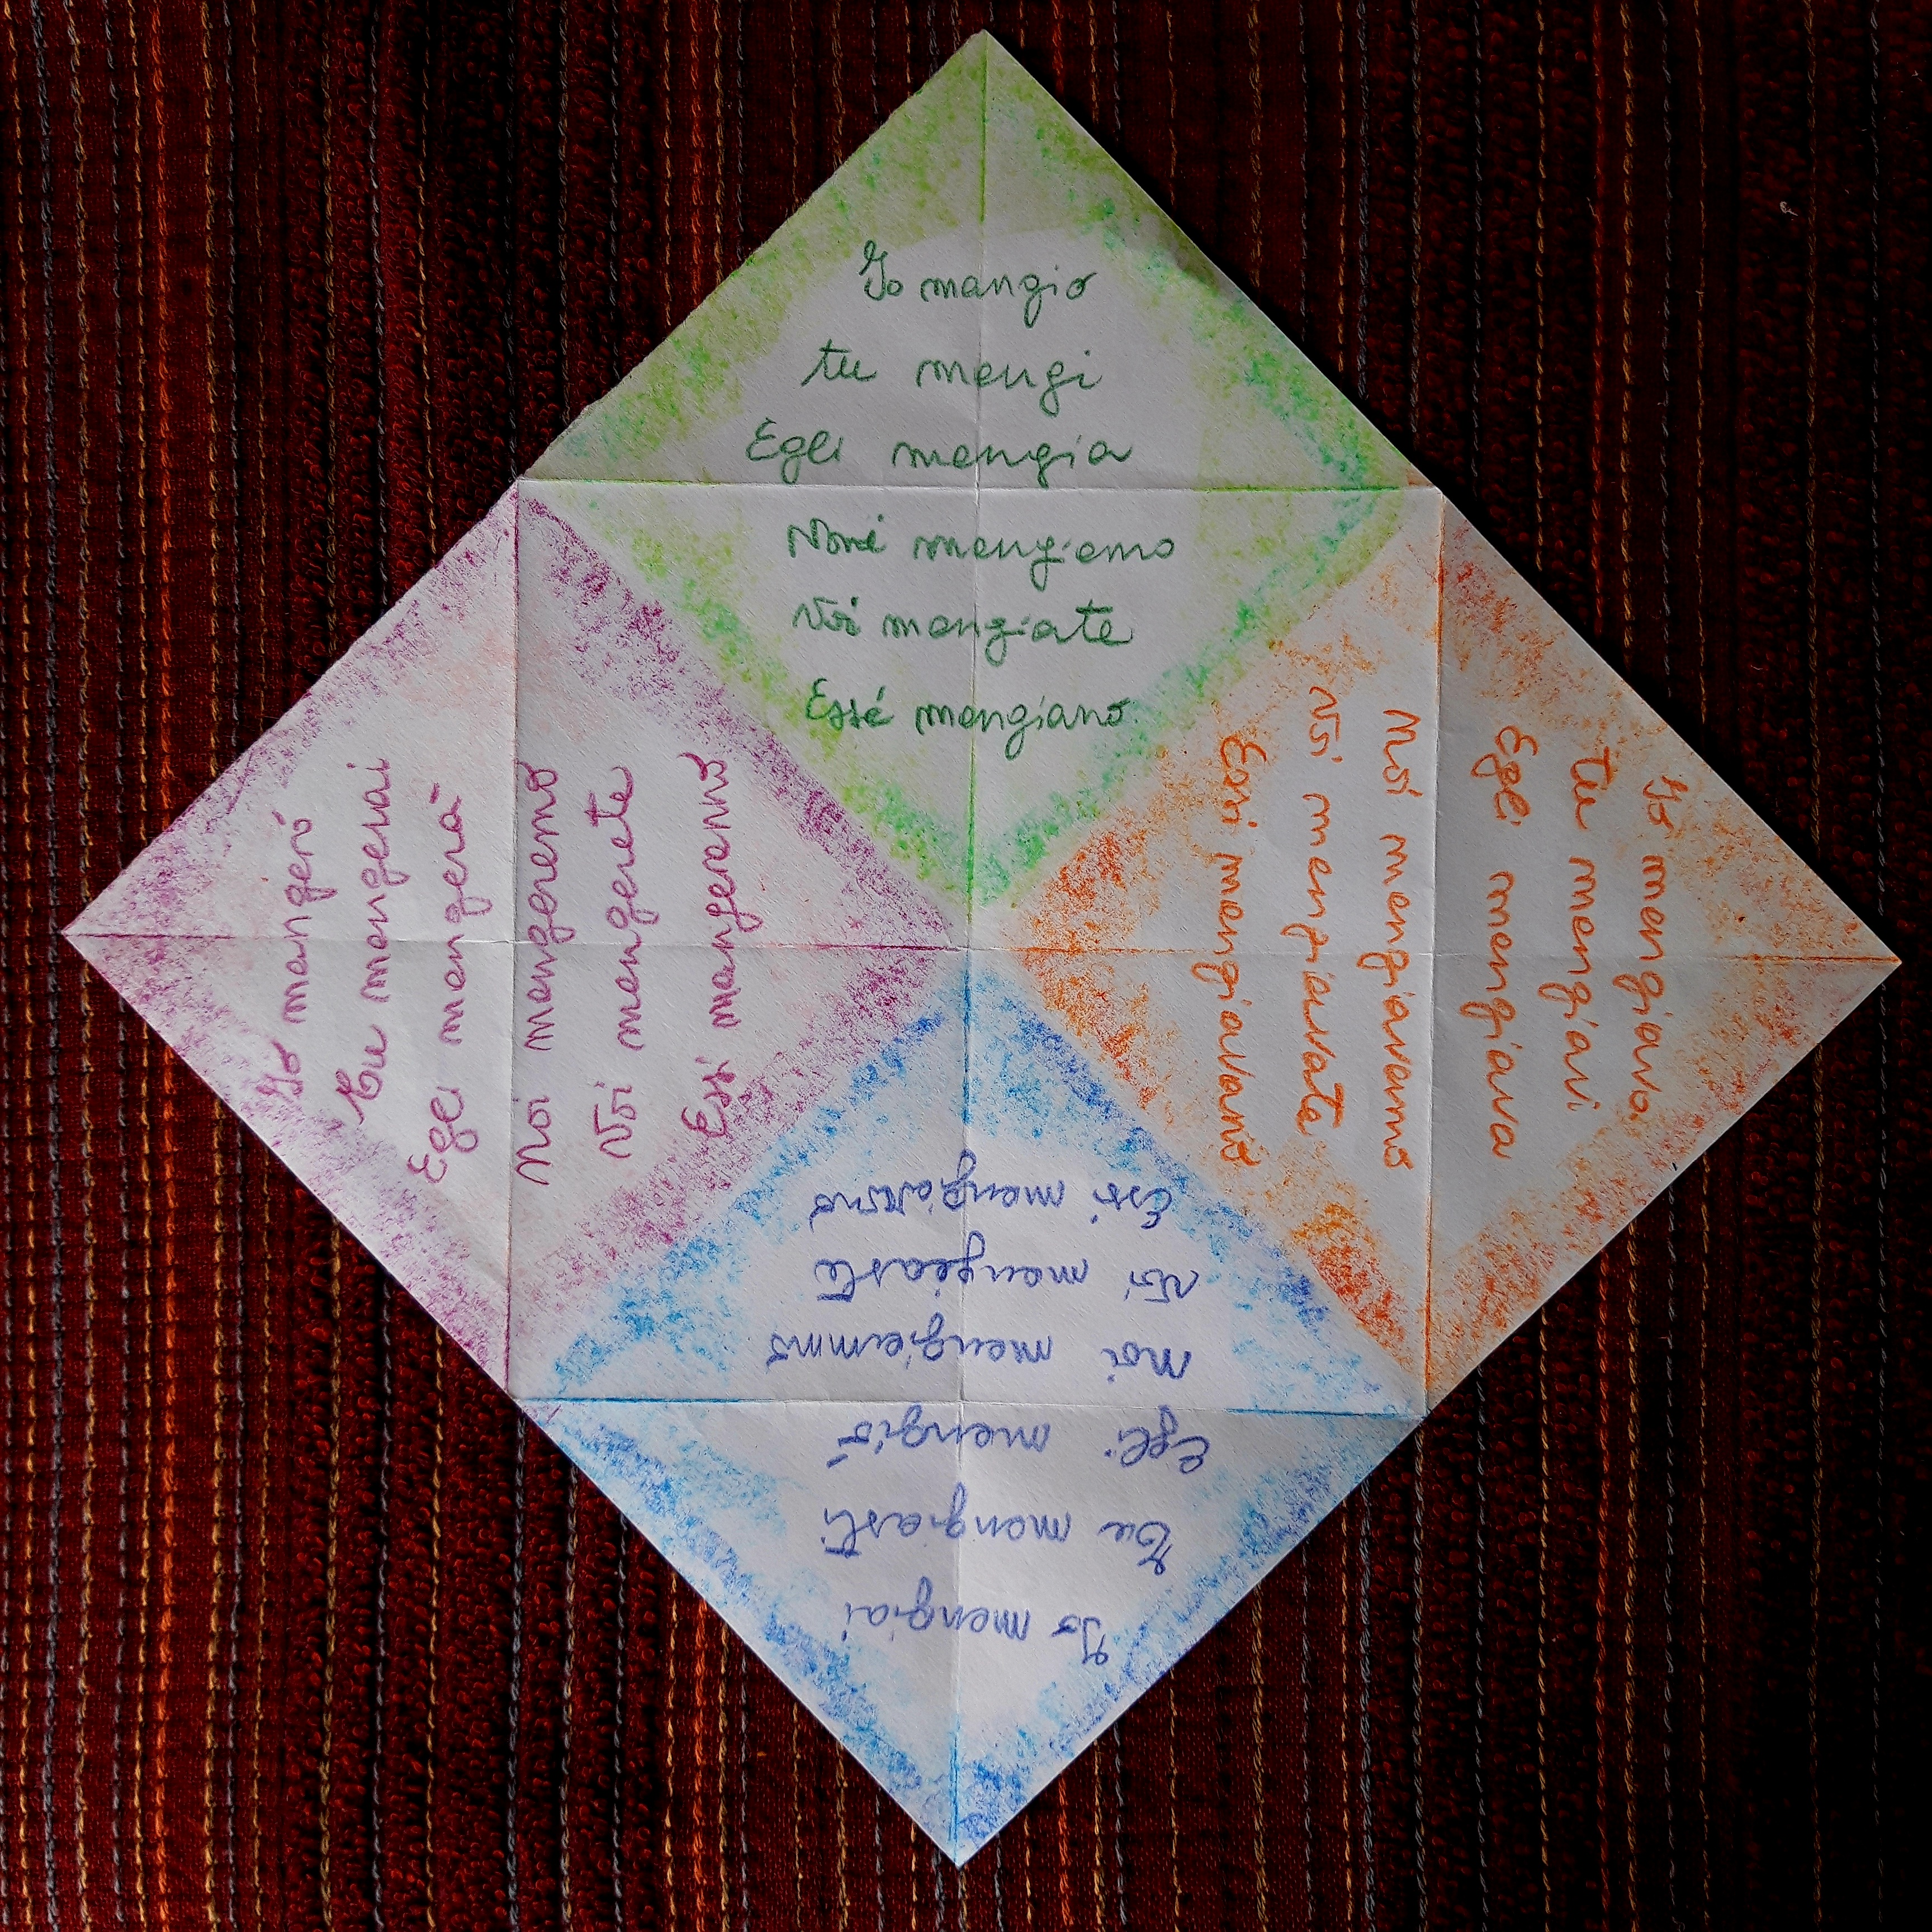 Io mangio
tu mangi
Egli mangia
Noi mangiamo
Voi mangiate
Essi mangiano
Io mangiavo
tu mangiavi
Egli mangiava
Noi mangiavamo
Voi mangiavate
Essi mangiavano
Io mangiai
Tu mangiasti
Egli mangiò
Noi mangiammo
Voi mangiaste
Essi mangiarono
Io mangerò
Tu mangerai
Egli mangerà
Noi mangeremo
Voi mangerete
Essi mangeranno